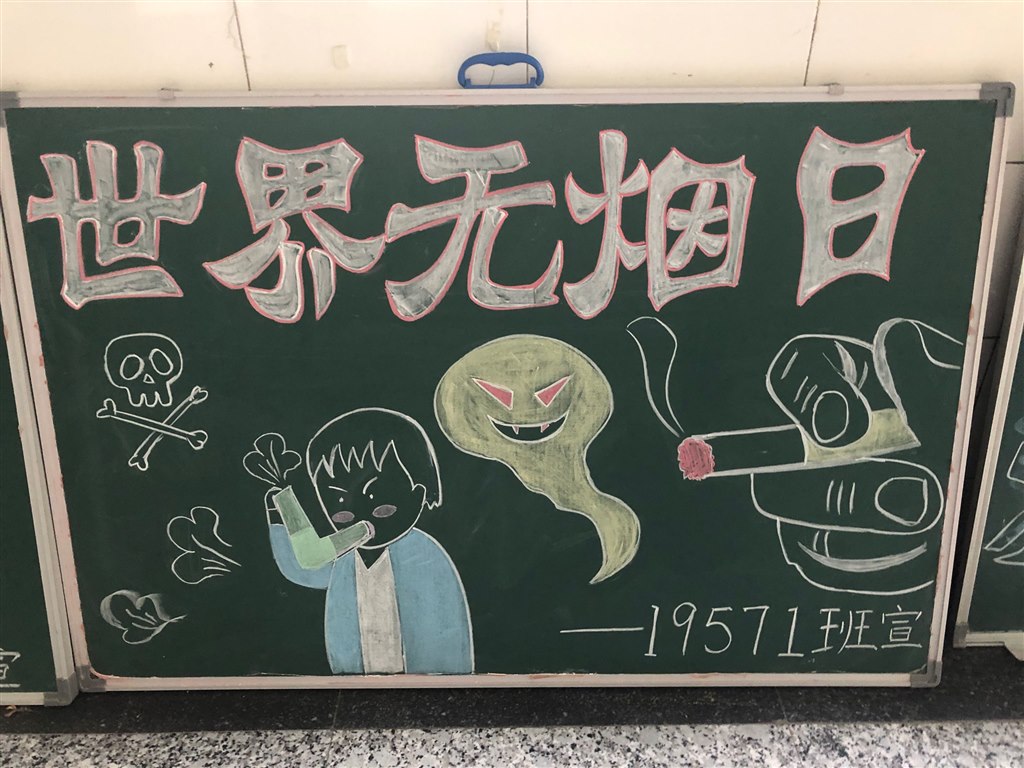 世界无烟日
—19571班宣
宣